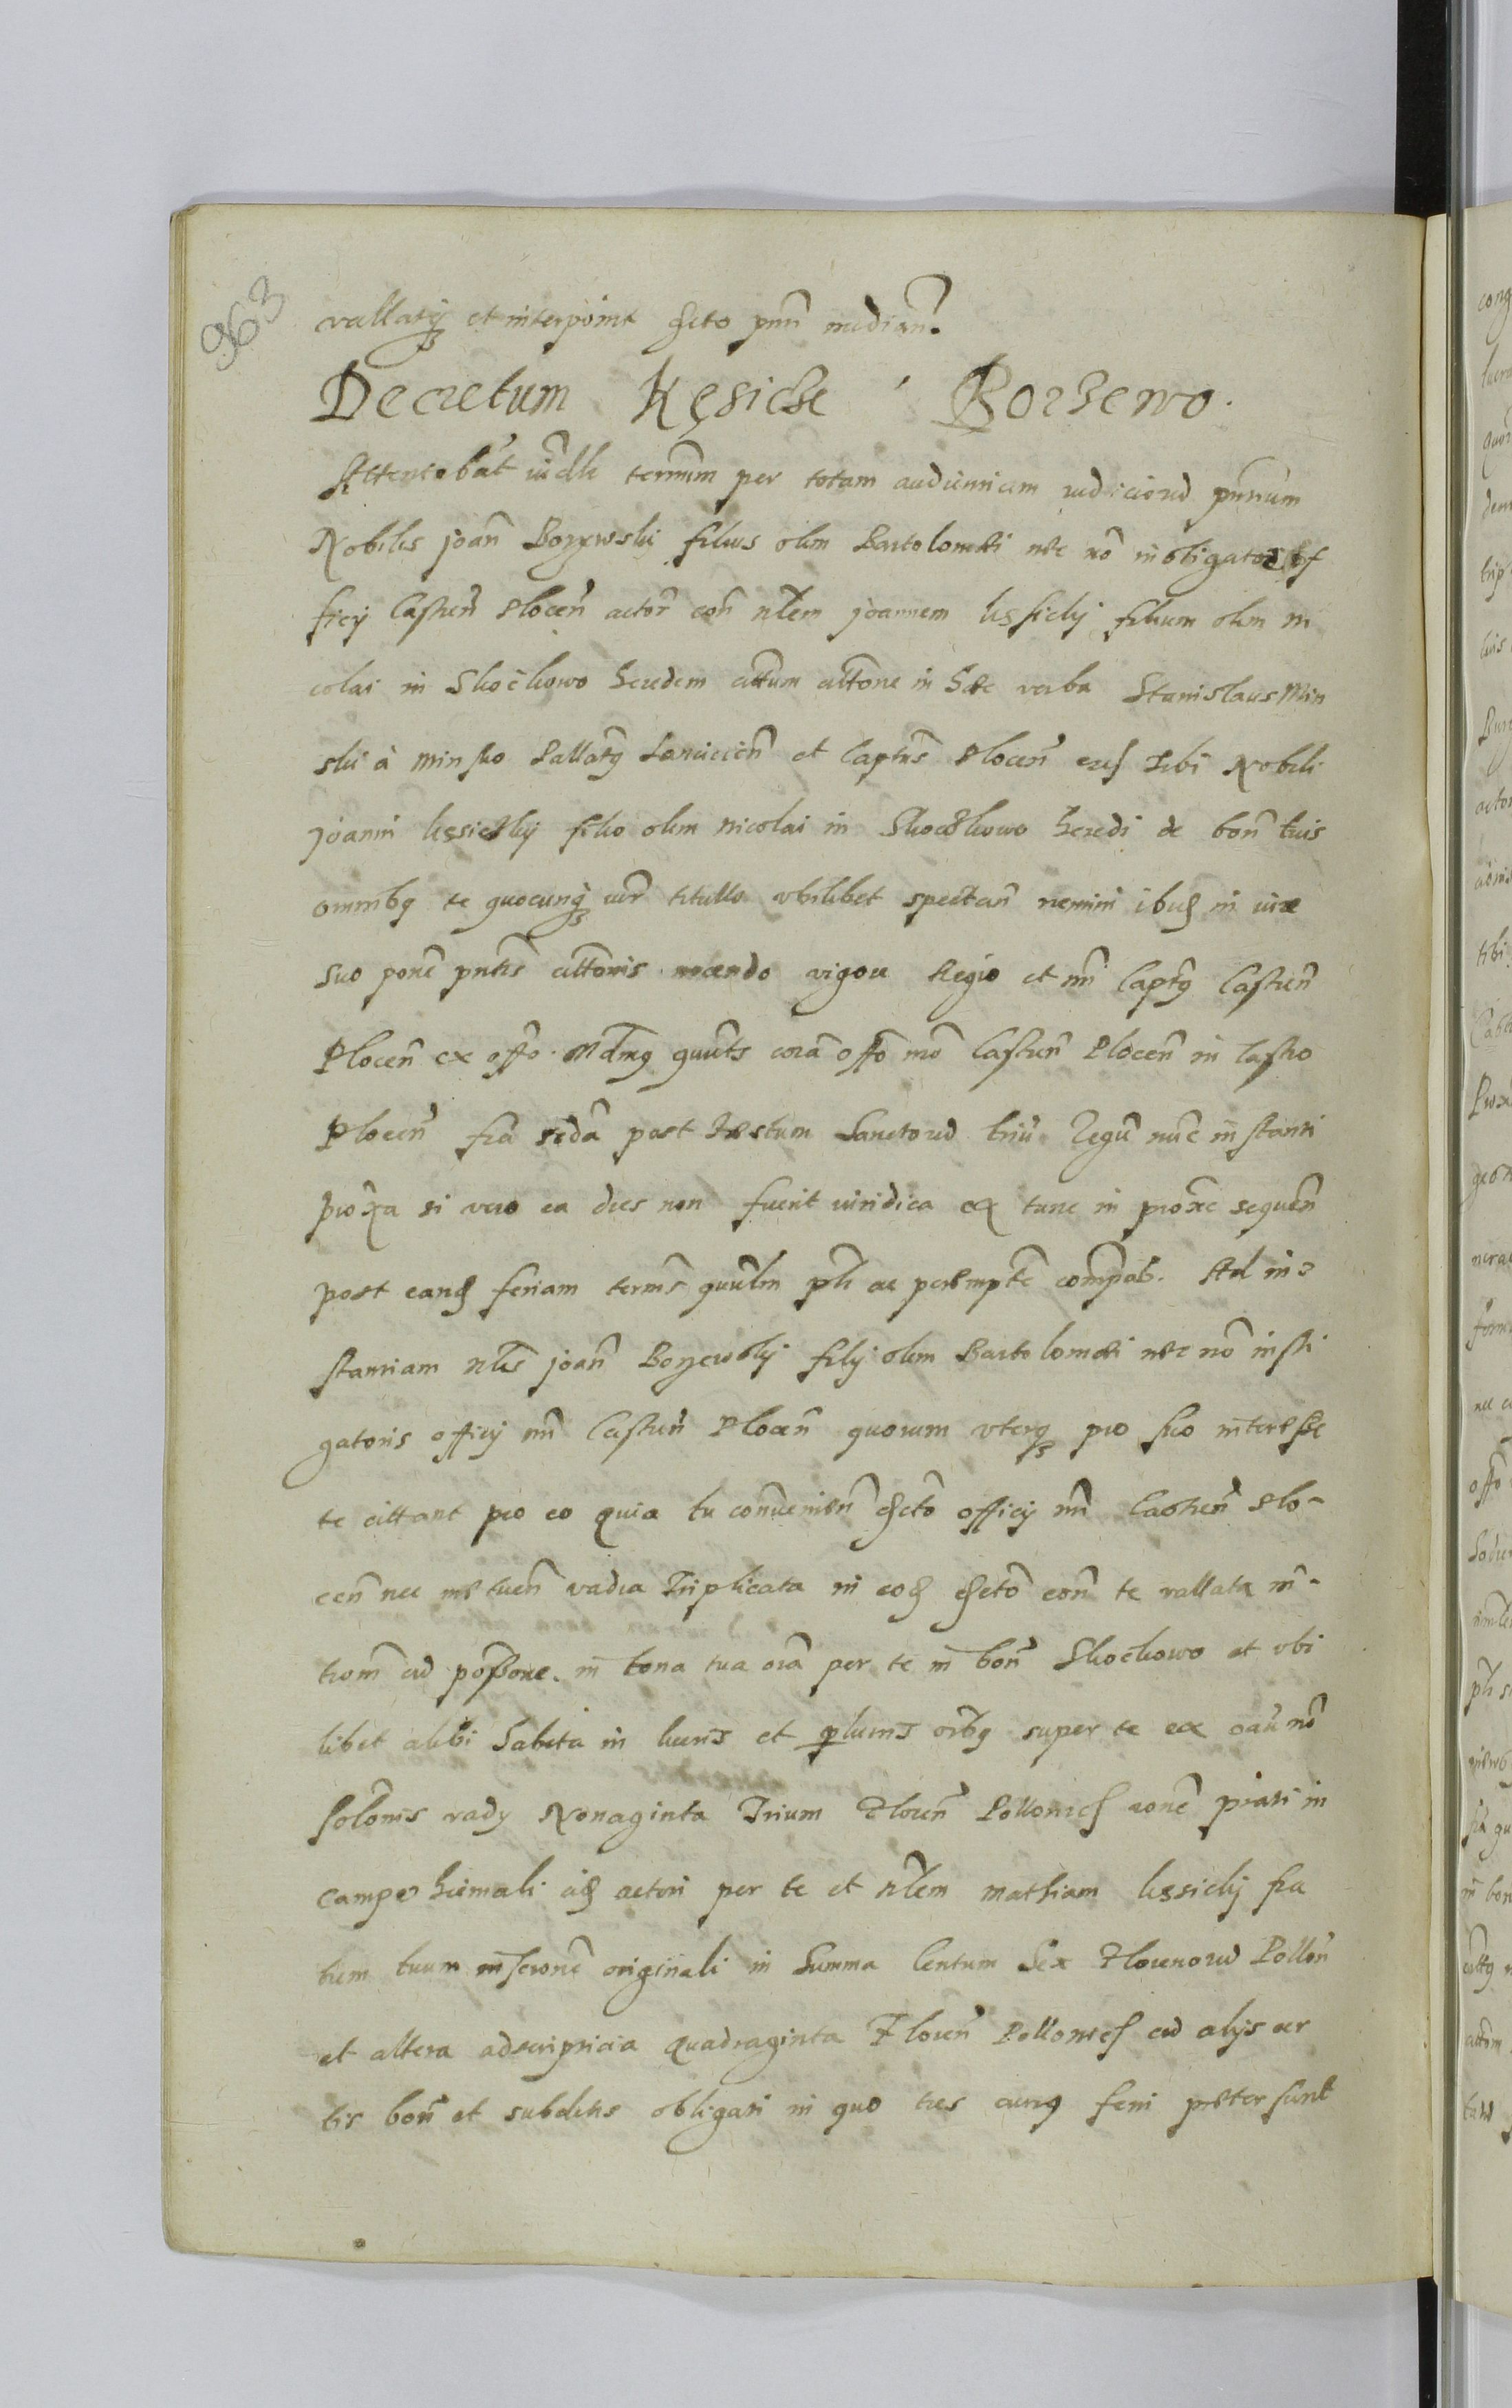 963
vallatq₃ et interpoint dcto pnn iudiciañ.
Decretum Kęsicke Borzewo.
Attentabat iudle termm per totam audientiam iudiciorũ pñtium
Nobilis joañ Borzewski filius olim Bartolomei nec nõ instigator of
ficij Castreñ Plocen̄ actor̄ con̄ nlem joannem kęsicky filium olim ni
colai in Skoc̃kowo heredem cittum cittone in hæc verba Stanislaus Min
ski à minsko Pallatꝰ Lanciciẽn et Captꝰs Plocen̄ etc̄ Tibi Nobili
joanni kęsicky filio olim nicolai in Skoczkowo heredi de bon̄ tuis
omnibꝰ te quocunq₃ iur̄ titullo vbilibet spectañ nemini ibid in iure
suo pone pntis cittonis mando vigore Regio et mñ Captꝰ Castreñ
Plocen̄ ex offo. Mdmꝰ quatts corã offo mõ Castreñ Plocen̄ in Castro
Plocen̄ fra scdã post Festum Sanctorũ triũ Regũ nũc instanti
proxa si vero ea dies non fuerit iuridica ex tunc in proxe sequen̄
post eand feriam terms quulm plr ac peremptẽ compab. Ad in=
stantiam nlis joañ Borzewsky filij olim Bartolomei nec nõ insti
gatoris officij mñ Castreñ Plocen̄ quorum vterq₃ pro suo interesse
te cittant pro eo quia tu conveniẽn dcto officij mñ Castreñ Plo-
cen̄ nec metuen̄ vadia Triplicata in eod dcto con̄ te vallata in-
trom ad possone. in bona tua oĩa per te in bon̄ Skoc̃kowo et vbi
libet alibi habita in lucris et plucris oĩbꝰ super te ex
solonis vadij Nonaginta Trium Floreñ Pollonics rone prati in
campo hiemali id actori per te et nlem mathiam kęsicky fra
trem tuum inscrone originali in summa Centum Sex Florenorũ Pollon̄
et altera adscripticia quadraginta Floreñ Pollonics cũ alijs cer
tis bon̄ et subditis obligati in quo tres currꝰ feni preter sunt